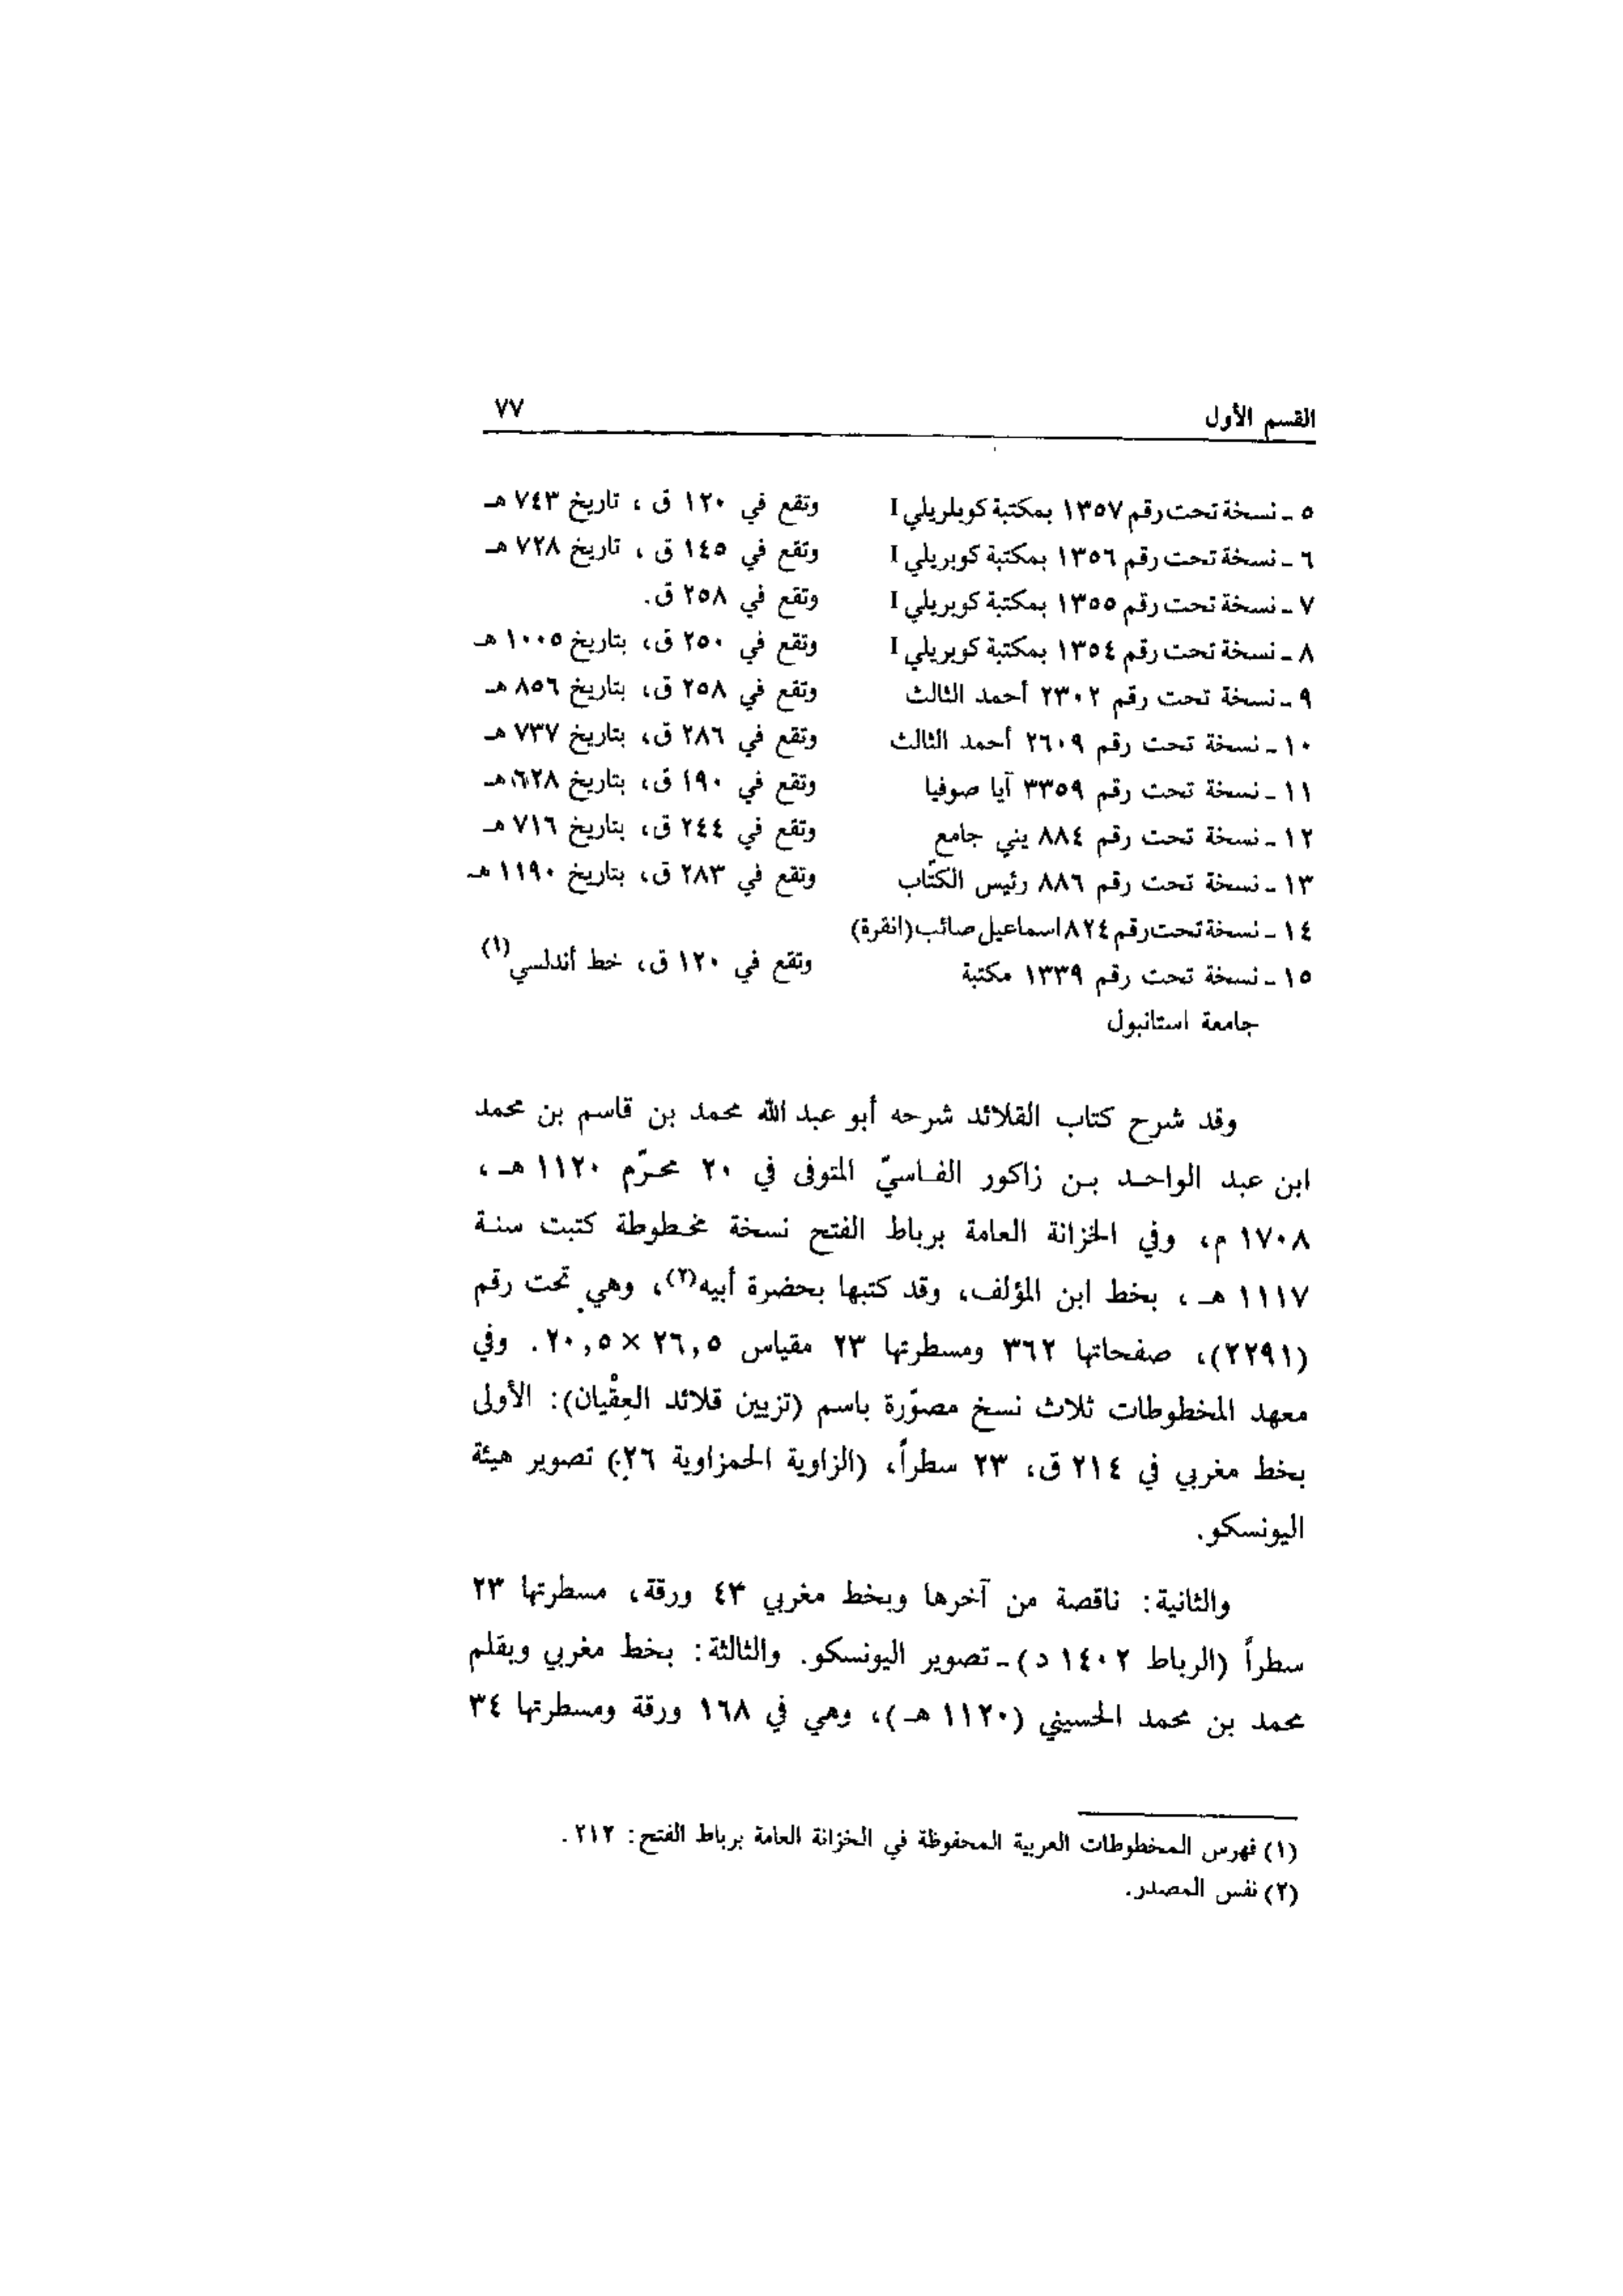 القسم الأول ٧٧
٥ ـ نسخة تحت رقم ١٣٥٧ بمكتبة كوبلريلي I وتقع في ١٢٠ ق ، تاريخ ٧٤٣ هـ
٦ ـ نسخة تحت رقم ١٣٥٦ بمكتبة كوبريلي I وتقع في ١٤٥ ق ، تاريخ ٧٢٨ هـ
٧ ـ نسخة تحت رقم ١٣٥٥ بمكتبة كوبريلي I وتقع في ٢٥٨ ق.
٨ ـ نسخة تحت رقم ١٣٥٤ بمكتبة كوبريلي I وتقع في ٢٥٠ ق، بتاريخ ١٠٠٥ هـ
٩ ـ نسخة تحت رقم ٢٣٠٢ أحمد الثالث وتقع في ٢٥٨ ق، بتاريخ ٨٥٦ هـ
١٠ ـ نسخة تحت رقم ٢٦٠٩ أحمد الثالث وتقع في ٢٨٦ ق، بتاريخ ٧٣٧ هـ
١١ ـ نسخة تحت رقم ٣٣٥٩ آيا صوفيا وتقع في ١٩٠ ق، بتاريخ ٦٢٨ هـ
١٢ ـ نسخة تحت رقم ٨٨٤ يني جامع وتقع في ٢٤٤ ق، بتاريخ ٧١٦ هـ
١٣ ـ نسخة تحت رقم ٨٨٦ رئيس الكتّاب وتقع في ٢٨٣ ق، بتاريخ ١١٩٠ هـ
١٤ ـ نسخة تحت رقم ٨٢٤ اسماعيل صائب (انقرة)
١٥ ـ نسخة تحت رقم ١٣٣٩ مكتبة وتقع في ١٢٠ ق، خط أندلسي(١)
جامعة استانبول
وقد شرح كتاب القلائد شرحه أبو عبد الله محمد بن قاسم بن محمد
ابن عبد الواحـد بـن زاكور الفـاسيّ المتوفى في ٢٠ محـرّم ١١٢٠ هـ ،
١٧٠٨ م، وفي الخزانة العامة برباط الفتح نسخة مخطوطة كتبت سنـة
١١١٧ هـ ، بخط ابن المؤلف، وقد كتبها بحضرة أبيه(٢)، وهي تحت رقم
(٢٢٩١)، صفحاتها ٣٦٢ ومسطرتها ٢٣ مقياس ٢٦,٥ × ٢٠,٥ . وفي
معهد المخطوطات ثلاث نسخ مصوّرة باسم (تزيين قلائد العِقْيان): الأولى
بخط مغربي في ٢١٤ ق، ٢٣ سطراً، (الزاوية الحمزاوية ٢٦) تصوير هيئة
اليونسكو.
والثانية: ناقصة من آخرها وبخط مغربي ٤٣ ورقة، مسطرتها ٢٣
سطراً (الرباط ١٤٠٢ د) ـ تصوير اليونسكو. والثالثة: بخط مغربي وبقلم
محمد بن محمد الحسيني (١١٢٠ هـ)، وهي في ١٦٨ ورقة ومسطرتها ٣٤
(١) فهرس المخطوطات العربية المحفوظة في الخزانة العامة برباط الفتح: ٢١٢ .
(٢) نفس المصدر.